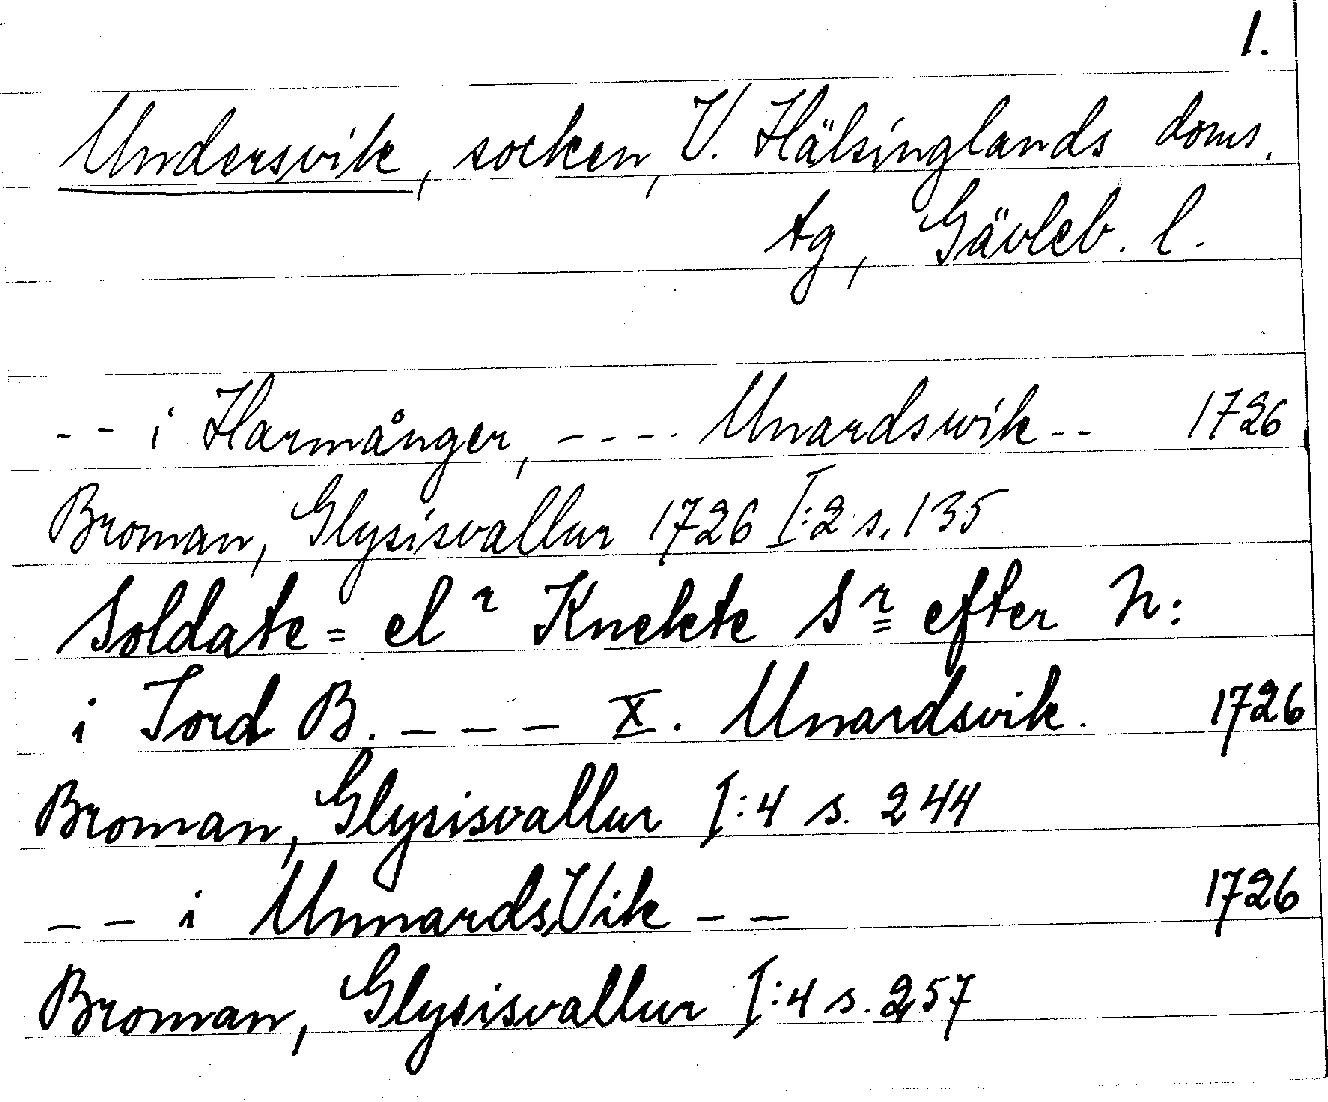 1.
Undersvik, socken, V. Hälsinglands doms.
tg, Gävleb. l.
-- i Harmånger, ---- Unardswik -- 1726
Broman, Glysisvallur 1726 I:2 s. 135
Soldate= el r Knekte S r efter N:
i Jord B. --- X. Unardsvik. 1726
Broman, Glysisvallur I:4 s. 244
-- i UnnardsVik -- 1726
Broman, Glysisvallur I:4 s. 257